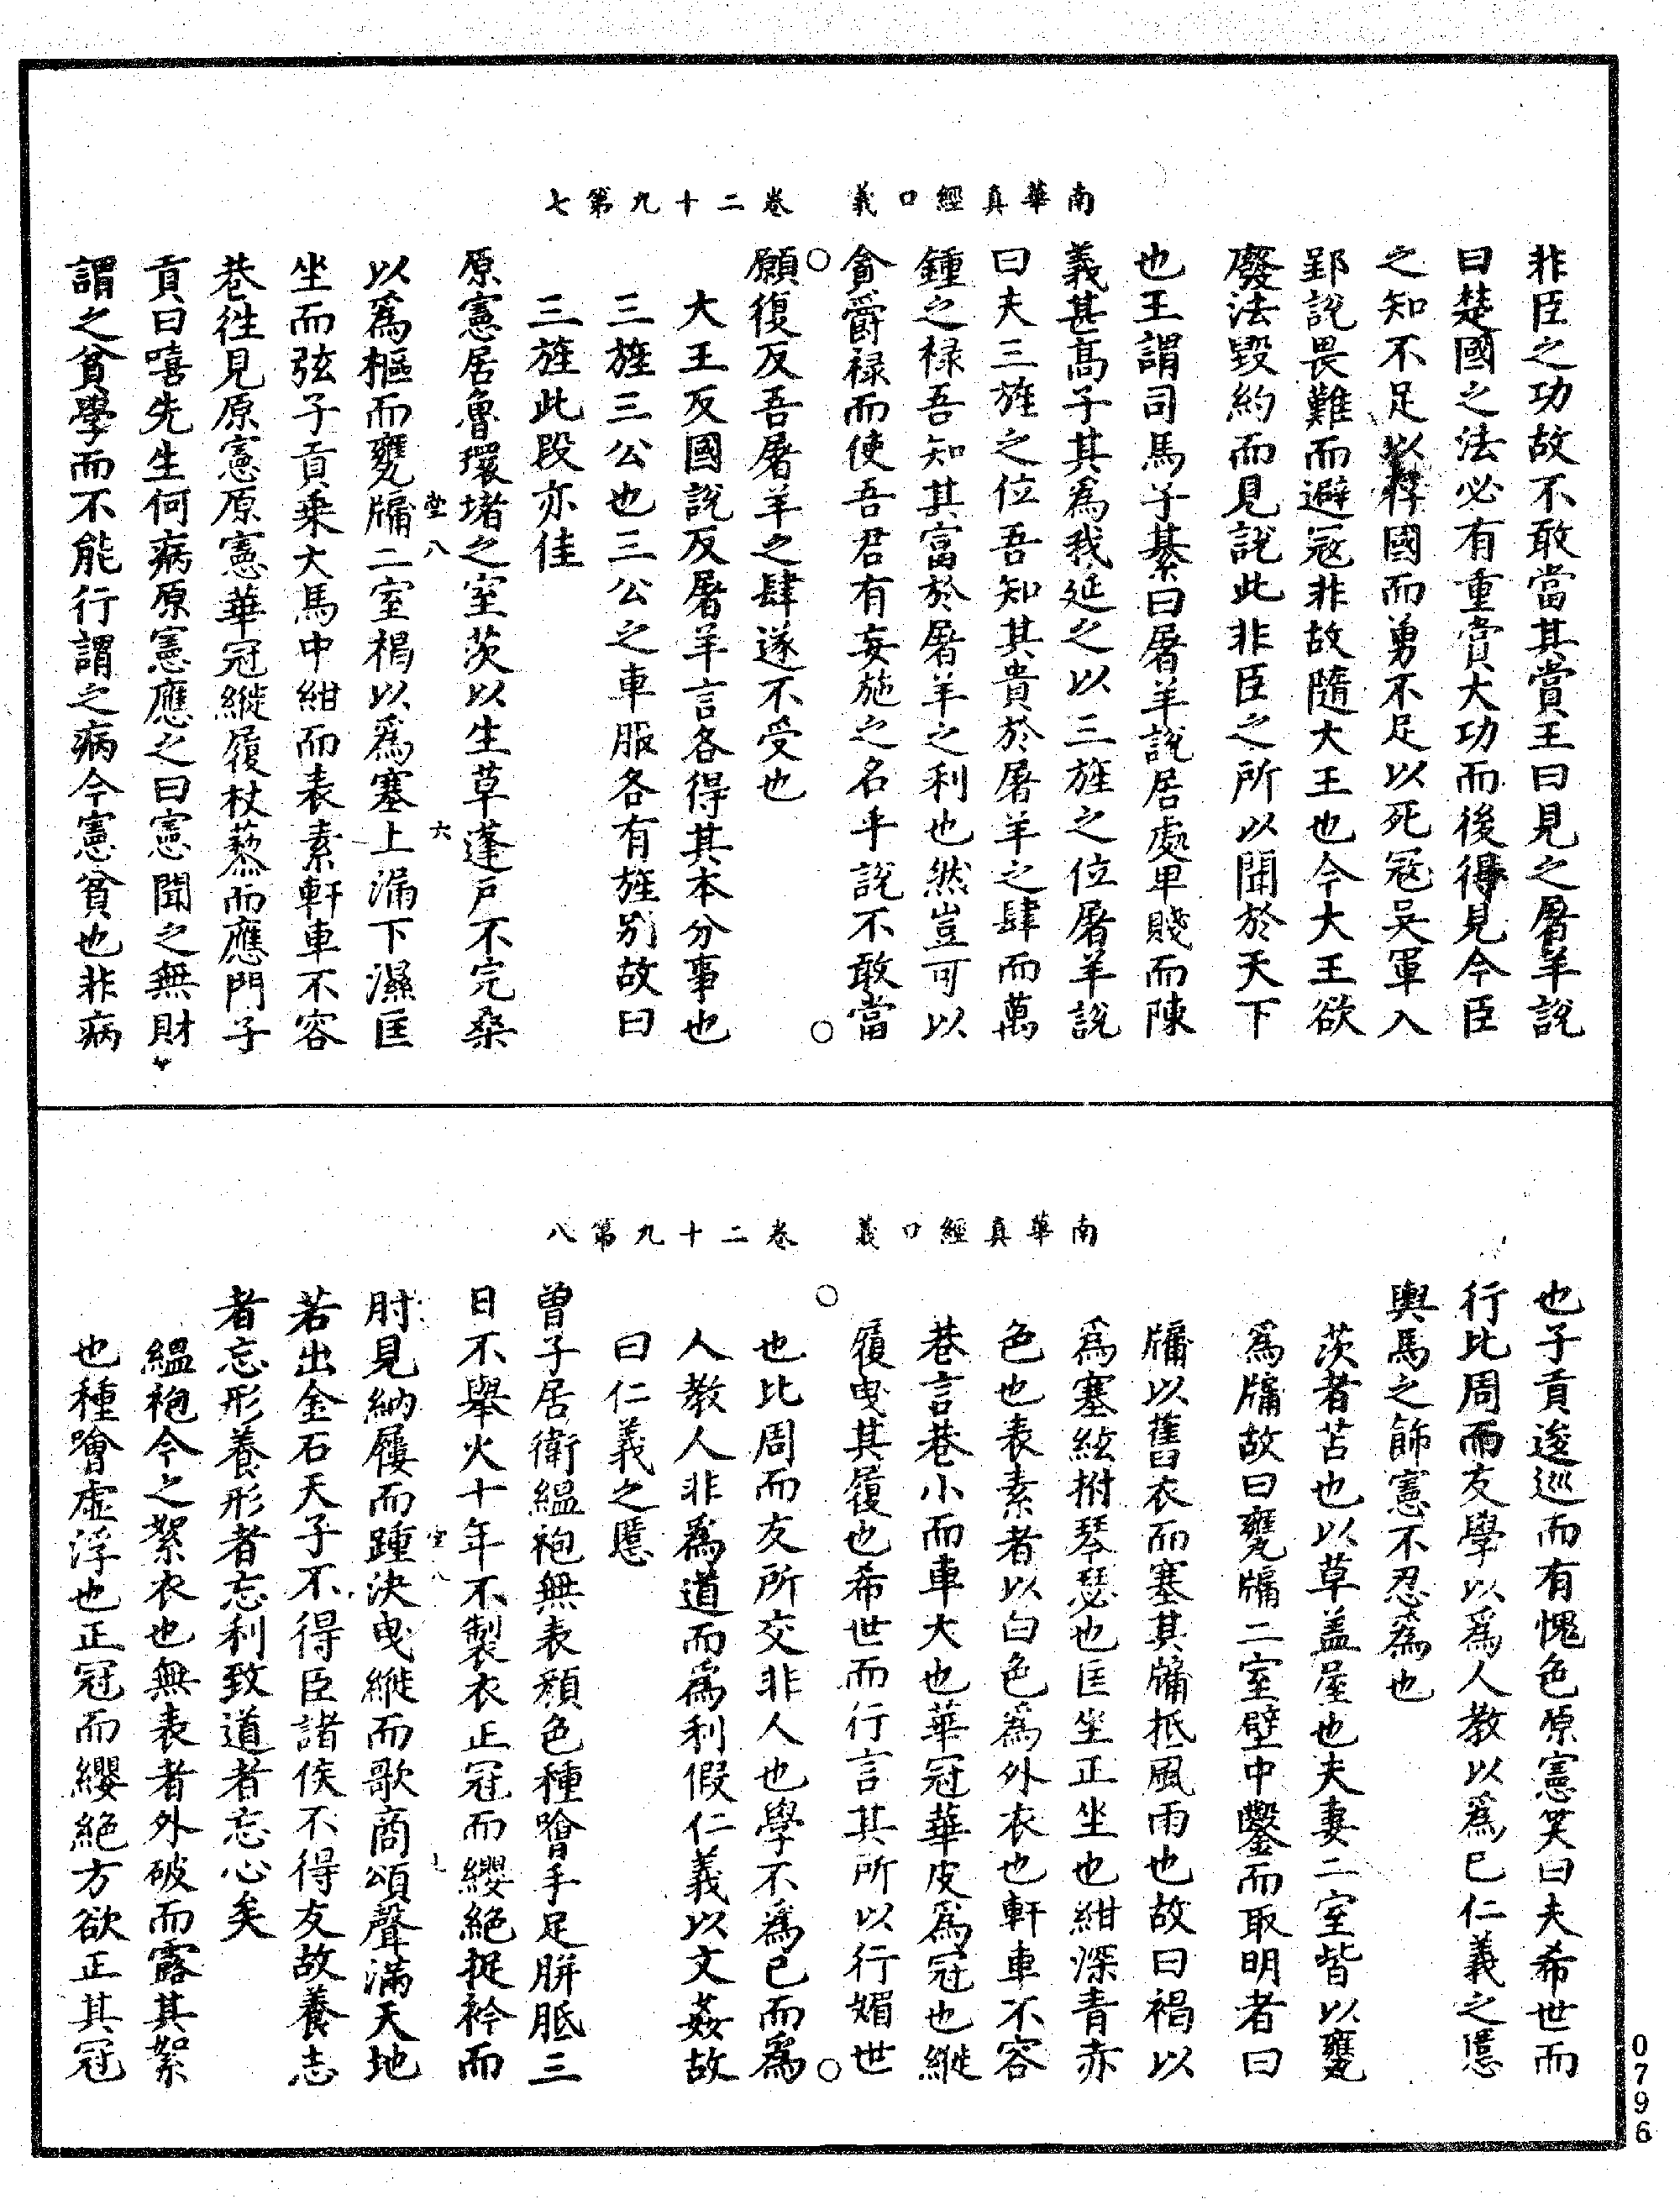 南華真經口義　卷二十九第七
非臣之功故不敢當其賞王曰見之屠羊說
曰楚國之法必有重賞大功而後得見今臣
之知不足以存國而勇不足以死寇吳軍入
郢說畏難而避寇非故隨大王也今大王欲
廢法毀約而見說此非臣之所以聞於天下
也王謂司馬子綦曰屠羊說居處卑賤而陳
義甚高子其為我延之以三旌之位屠羊說
曰夫三旌之位吾知其貴於屠羊之肆而萬
鍾之祿吾知其富於屠羊之利也然豈可以
貪爵祿而使吾君有妄施之名乎說不敢當
願復反吾屠羊之肆遂不受也
大王反國說反屠羊言各得其本分事也
三旌三公也三公之車服各有旌別故曰
三旌此段亦佳
原憲居魯環堵之室茨以生草蓬戶不完桑
以為樞而甕牖二室褐以為塞上漏下濕匡
坐而弦子貢乘大馬中紺而表素軒車不容
巷徃見原憲原憲華冠縰履杖藜而應門子
貢曰嘻先生何病原憲應之曰憲聞之無財
謂之貧學而不能行謂之病今憲貧也非病
南華真經口義　卷二十九第八
也子貢逡巡而有愧色原憲笑曰夫希世而
行比周而友學以為人教以為己仁義之慝
輿馬之飾憲不忍為也
茨者苫也以草蓋屋也夫妻二室皆以甕
為牖故曰甕牖二室壁中鑿而取明者曰
牖以舊衣而塞其牖抵風雨也故曰褐以
為塞絃拊琴瑟也匡坐正坐也紺深青赤
色也表素者以白色為外衣也軒車不容
巷言巷小而車大也華冠華皮為冠也縰
履曳其履也希世而行言其所以行媚世
也比周而友所交非人也學不為己而為
人教人非為道而為利假仁義以文姦故
曰仁義之慝
曾子居衛縕袍無表顏色種噲手足胼胝三
日不舉火十年不製衣正冠而纓絕捉衿而
肘見納屨而踵決曳縰而歌商頌聲滿天地
若出金石天子不得臣諸侯不得友故養志
者忘形養形者忘利致道者忘心矣
縕袍今之絮衣也無表者外破而露其絮
也種噲虛浮也正冠而纓絕方欲正其冠
0796